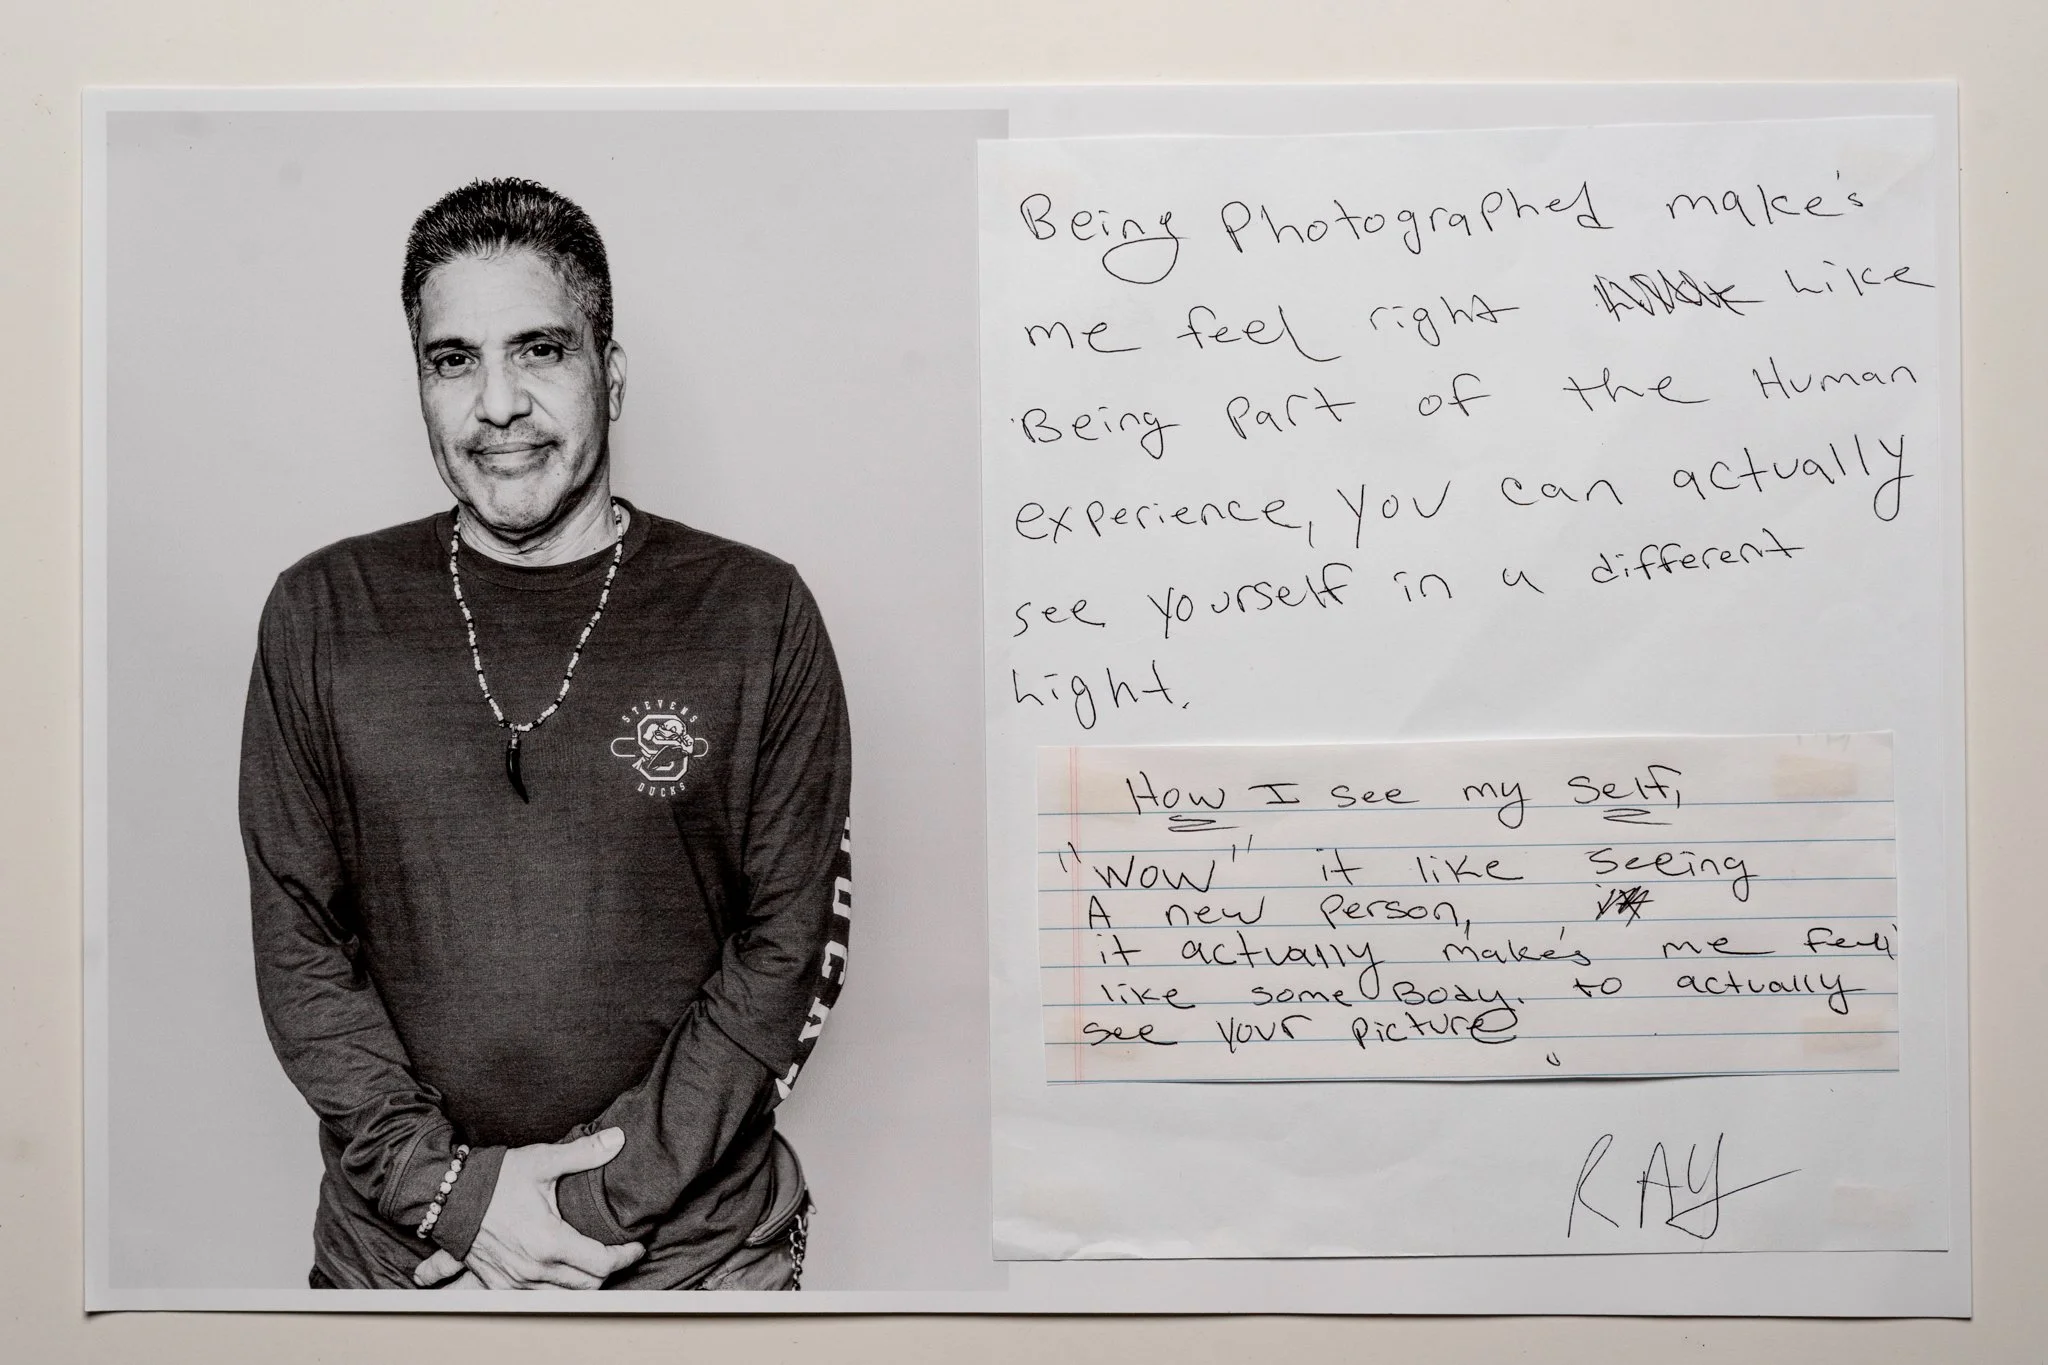 STEVENS
DUCKS
Being Photographed make's
me feel right Like
Being Part of the Human
experience, you can actually
see yourself in a different
Light.
How I see my self,
"WOW" it like seeing
A new person,
it actually make's me feel
like some Body. to actually
see your picture
RAY